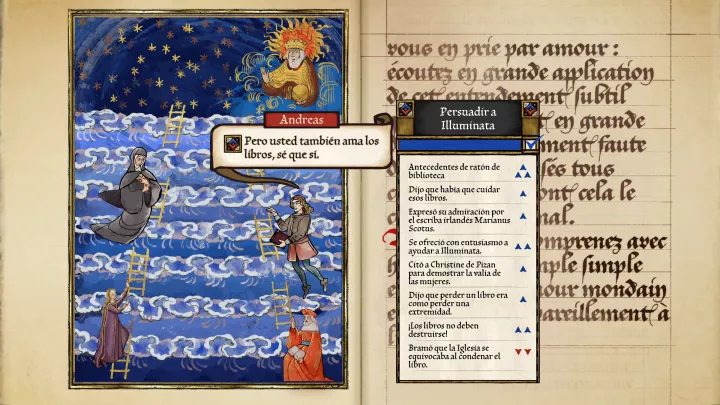 Andreas
Pero usted también ama los
libros, sé que sí.
vous en prie par amour :
écoutez en grande application
de cet entendement subtil
en grande
ment faute
sés tous
ont cela le
nal.
mprenez avec
ple simple
our mondain
pareillement à
Persuadir a
Illuminata
Antecedentes de ratón de
biblioteca
Dijo que había que cuidar
esos libros.
Expresó su admiración por
el escriba irlandés Marianus
Scotus.
Se ofreció con entusiasmo a
ayudar a Illuminata.
Citó a Christine de Pizan
para demostrar la valía de
las mujeres.
Dijo que perder un libro era
como perder una
extremidad.
¡Los libros no deben
destruirse!
Bramó que la Iglesia se
equivocaba al condenar el
libro.